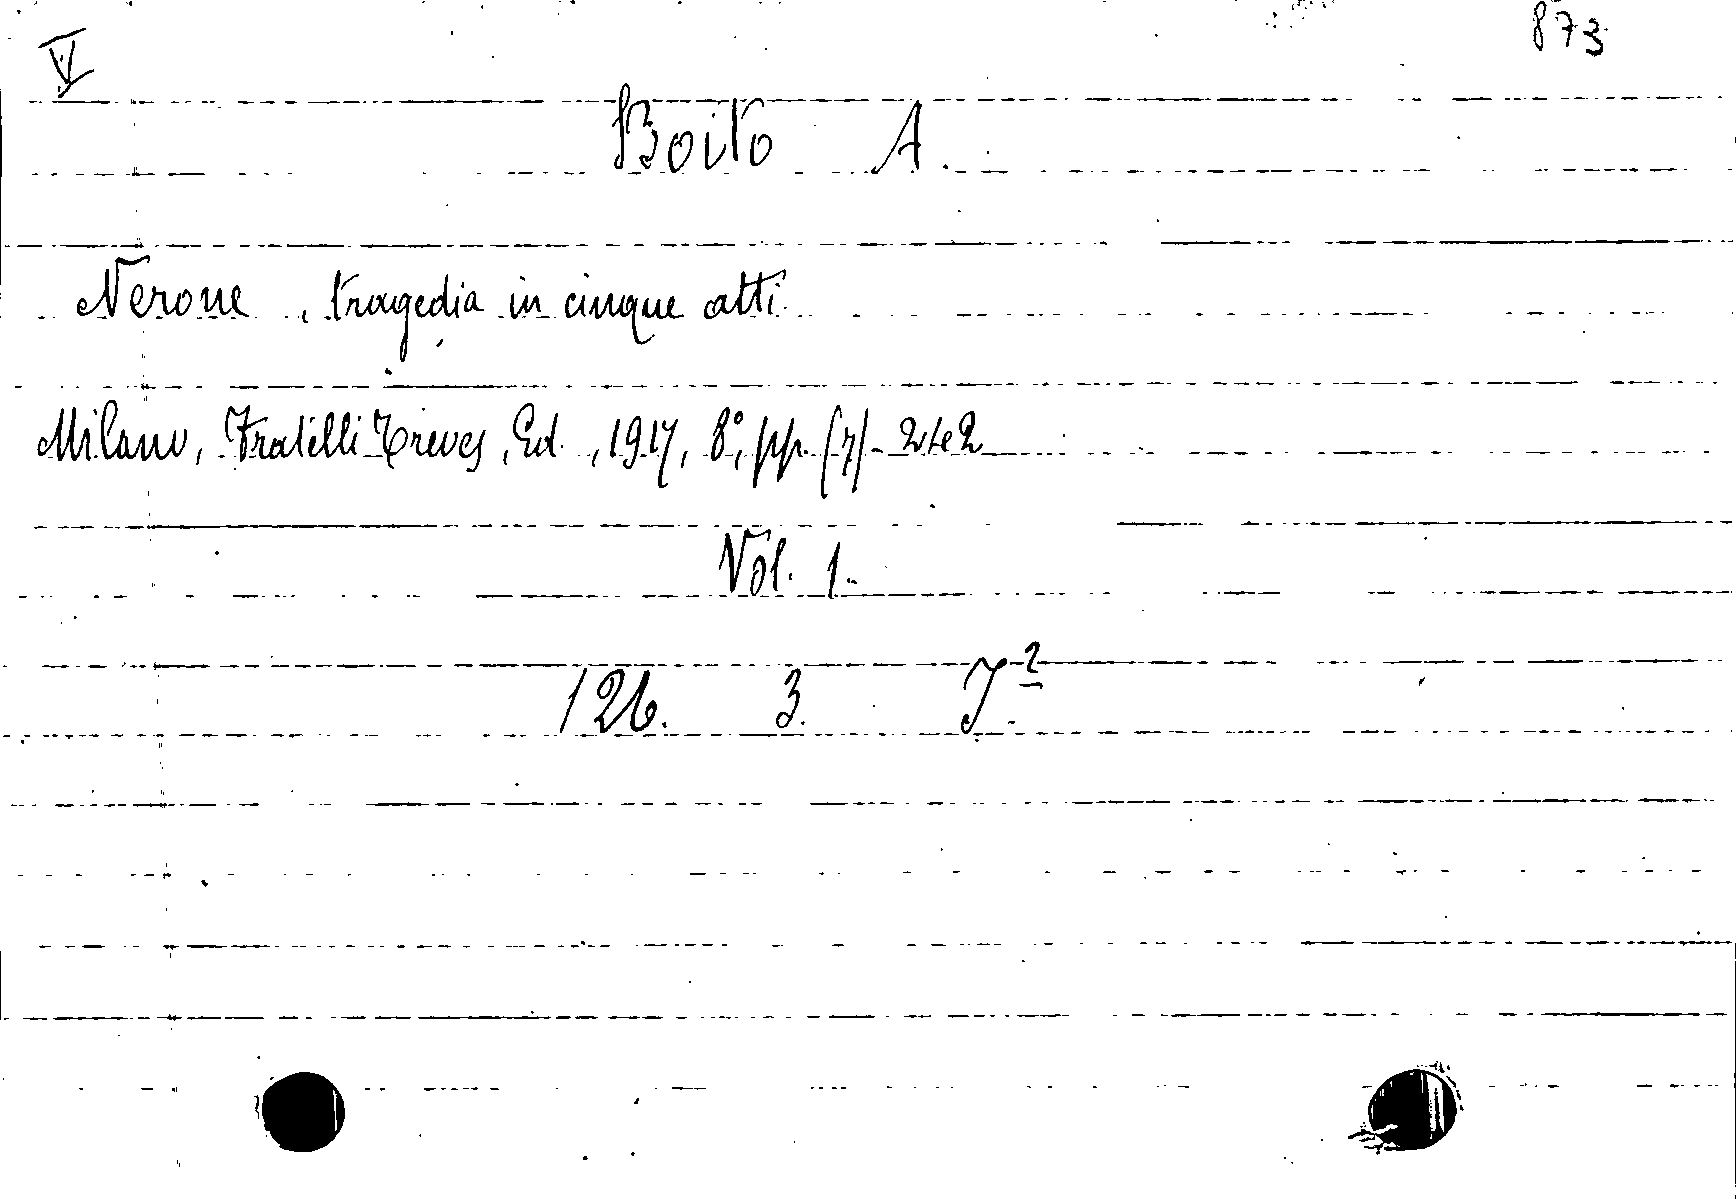 V 873
Boito A.
Nerone, tragedia in cinque atti
Milano, Fratelli Treves, Ed., 1917, 8°, pp. (7)-242
Vol. 1.
126. 3. J.²